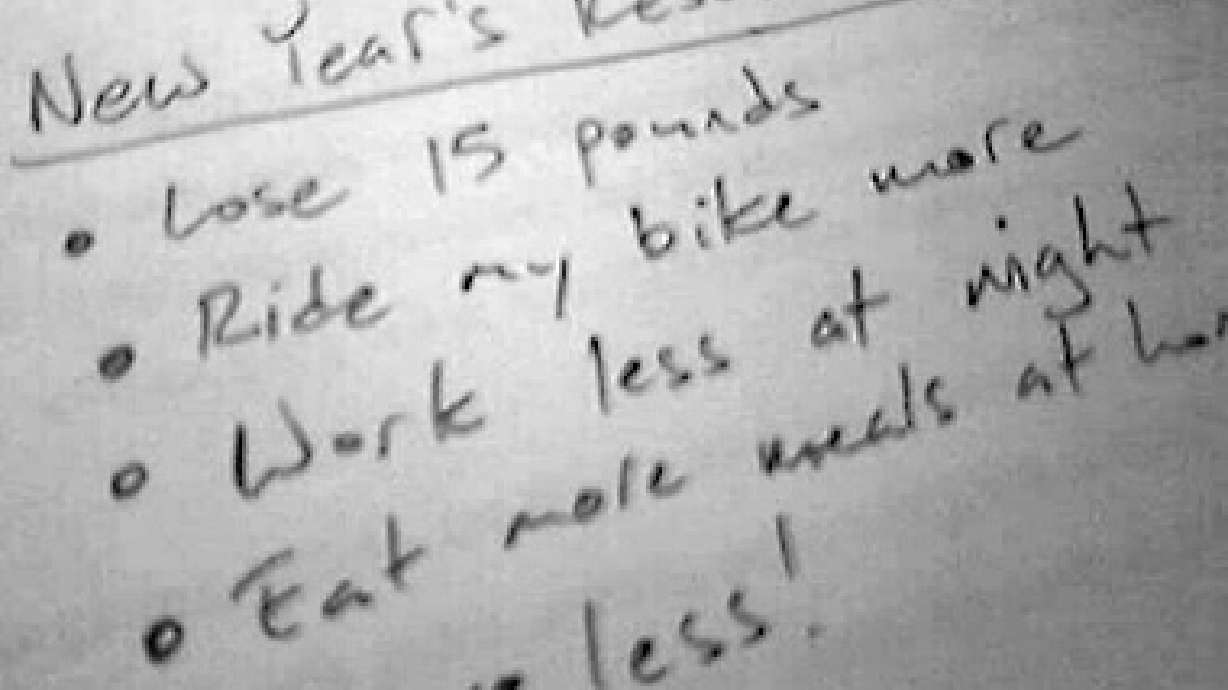 New Year's
• Lose 15 pounds
• Ride my bike more
• Work less at night
• Eat more meals at
less!